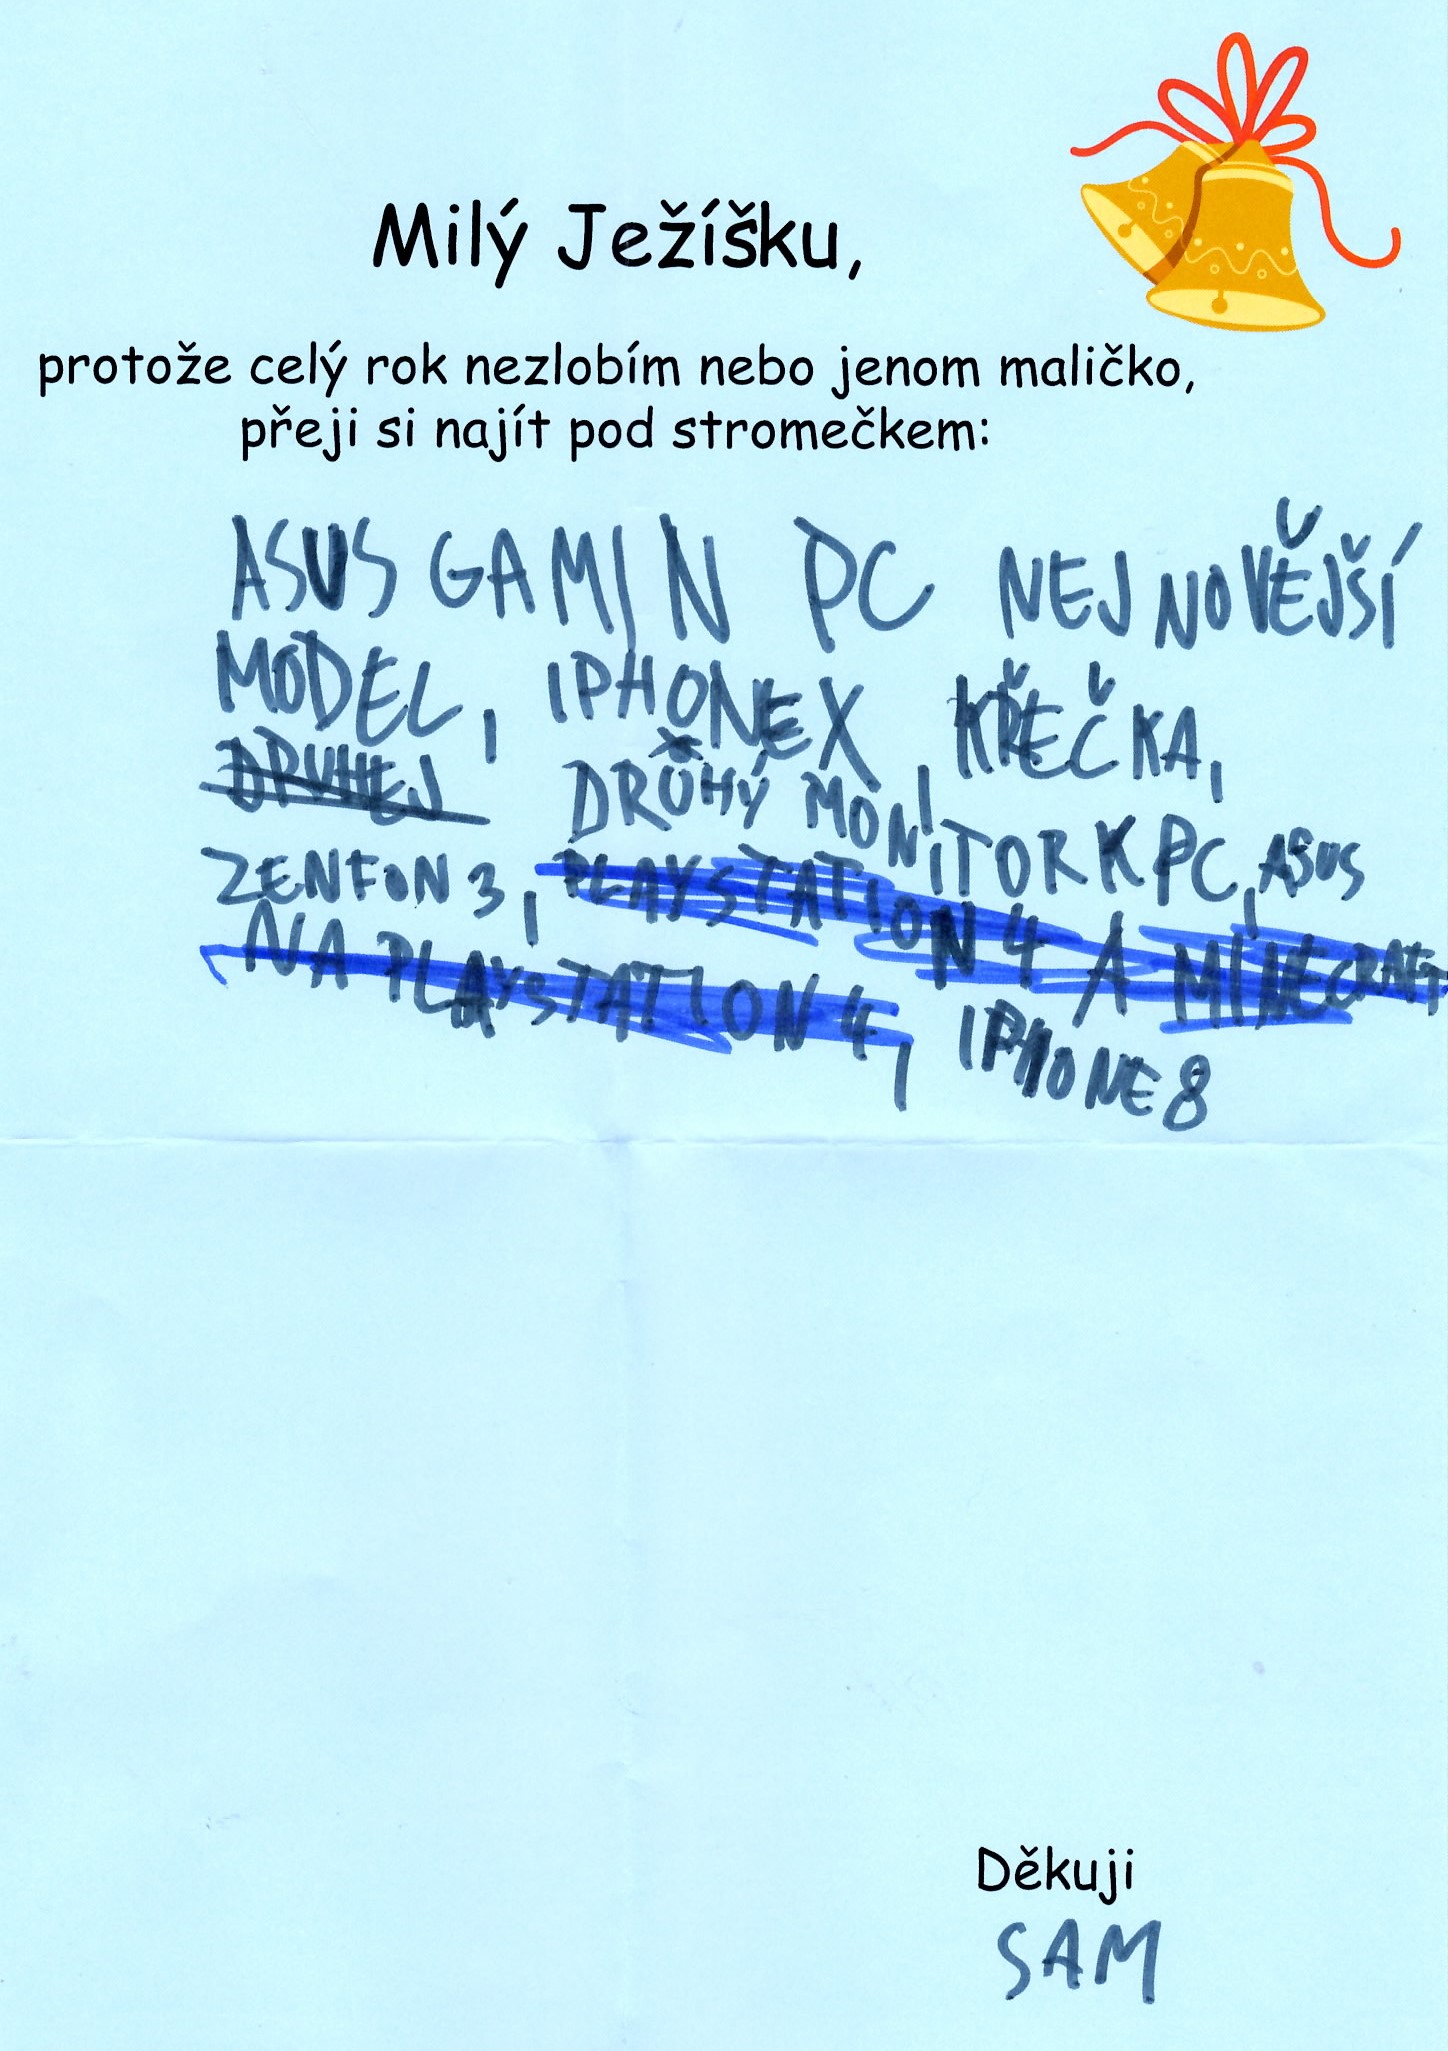 Milý Ježíšku,
protože celý rok nezlobím nebo jenom maličko,
přeji si najít pod stromečkem:
ASUS GAMIN PC NEJNOVĚJŠÍ
MODEL, IPHONE X, KŘEČKA,
DRUHEJ DRŮHÝ MONITOR K PC, ASUS
ZENFON 3, PLAYSTATION 4 A MINECRAFT
NA PLAYSTATION 4, IPHONE 8
Děkuji
SAM